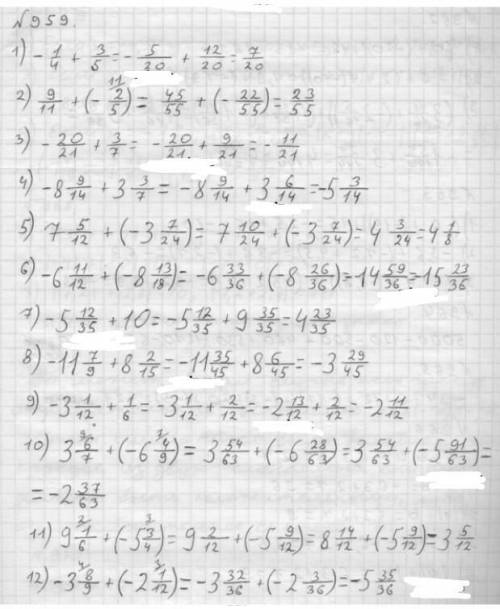 №959.
1) -1/4 + 3/5 = -5/20 + 12/20 = 7/20
2) 9/11 + (-2/5) = 45/55 + (-22/55) = 23/55
3) -20/21 + 3/7 = -20/21 + 9/21 = -11/21
4) -8 9/14 + 3 3/7 = -8 9/14 + 3 6/14 = -5 3/14
5) 7 5/12 + (-3 7/24) = 7 10/24 + (-3 7/24) = 4 3/24 = 4 1/8
6) -6 11/12 + (-8 13/18) = -6 33/36 + (-8 26/36) = -14 59/36 = -15 23/36
7) -5 12/35 + 10 = -5 12/35 + 9 35/35 = 4 23/35
8) -11 7/9 + 8 2/15 = -11 35/45 + 8 6/45 = -3 29/45
9) -3 1/12 + 1/6 = -3 1/12 + 2/12 = -2 13/12 + 2/12 = -2 11/12
10) 3 6/7 + (-6 4/9) = 3 54/63 + (-6 28/63) = 3 54/63 + (-5 91/63) =
= -2 37/63
11) 9 1/6 + (-5 3/4) = 9 2/12 + (-5 9/12) = 8 14/12 + (-5 9/12) = 3 5/12
12) -3 8/9 + (-2 1/12) = -3 32/36 + (-2 3/36) = -5 35/36